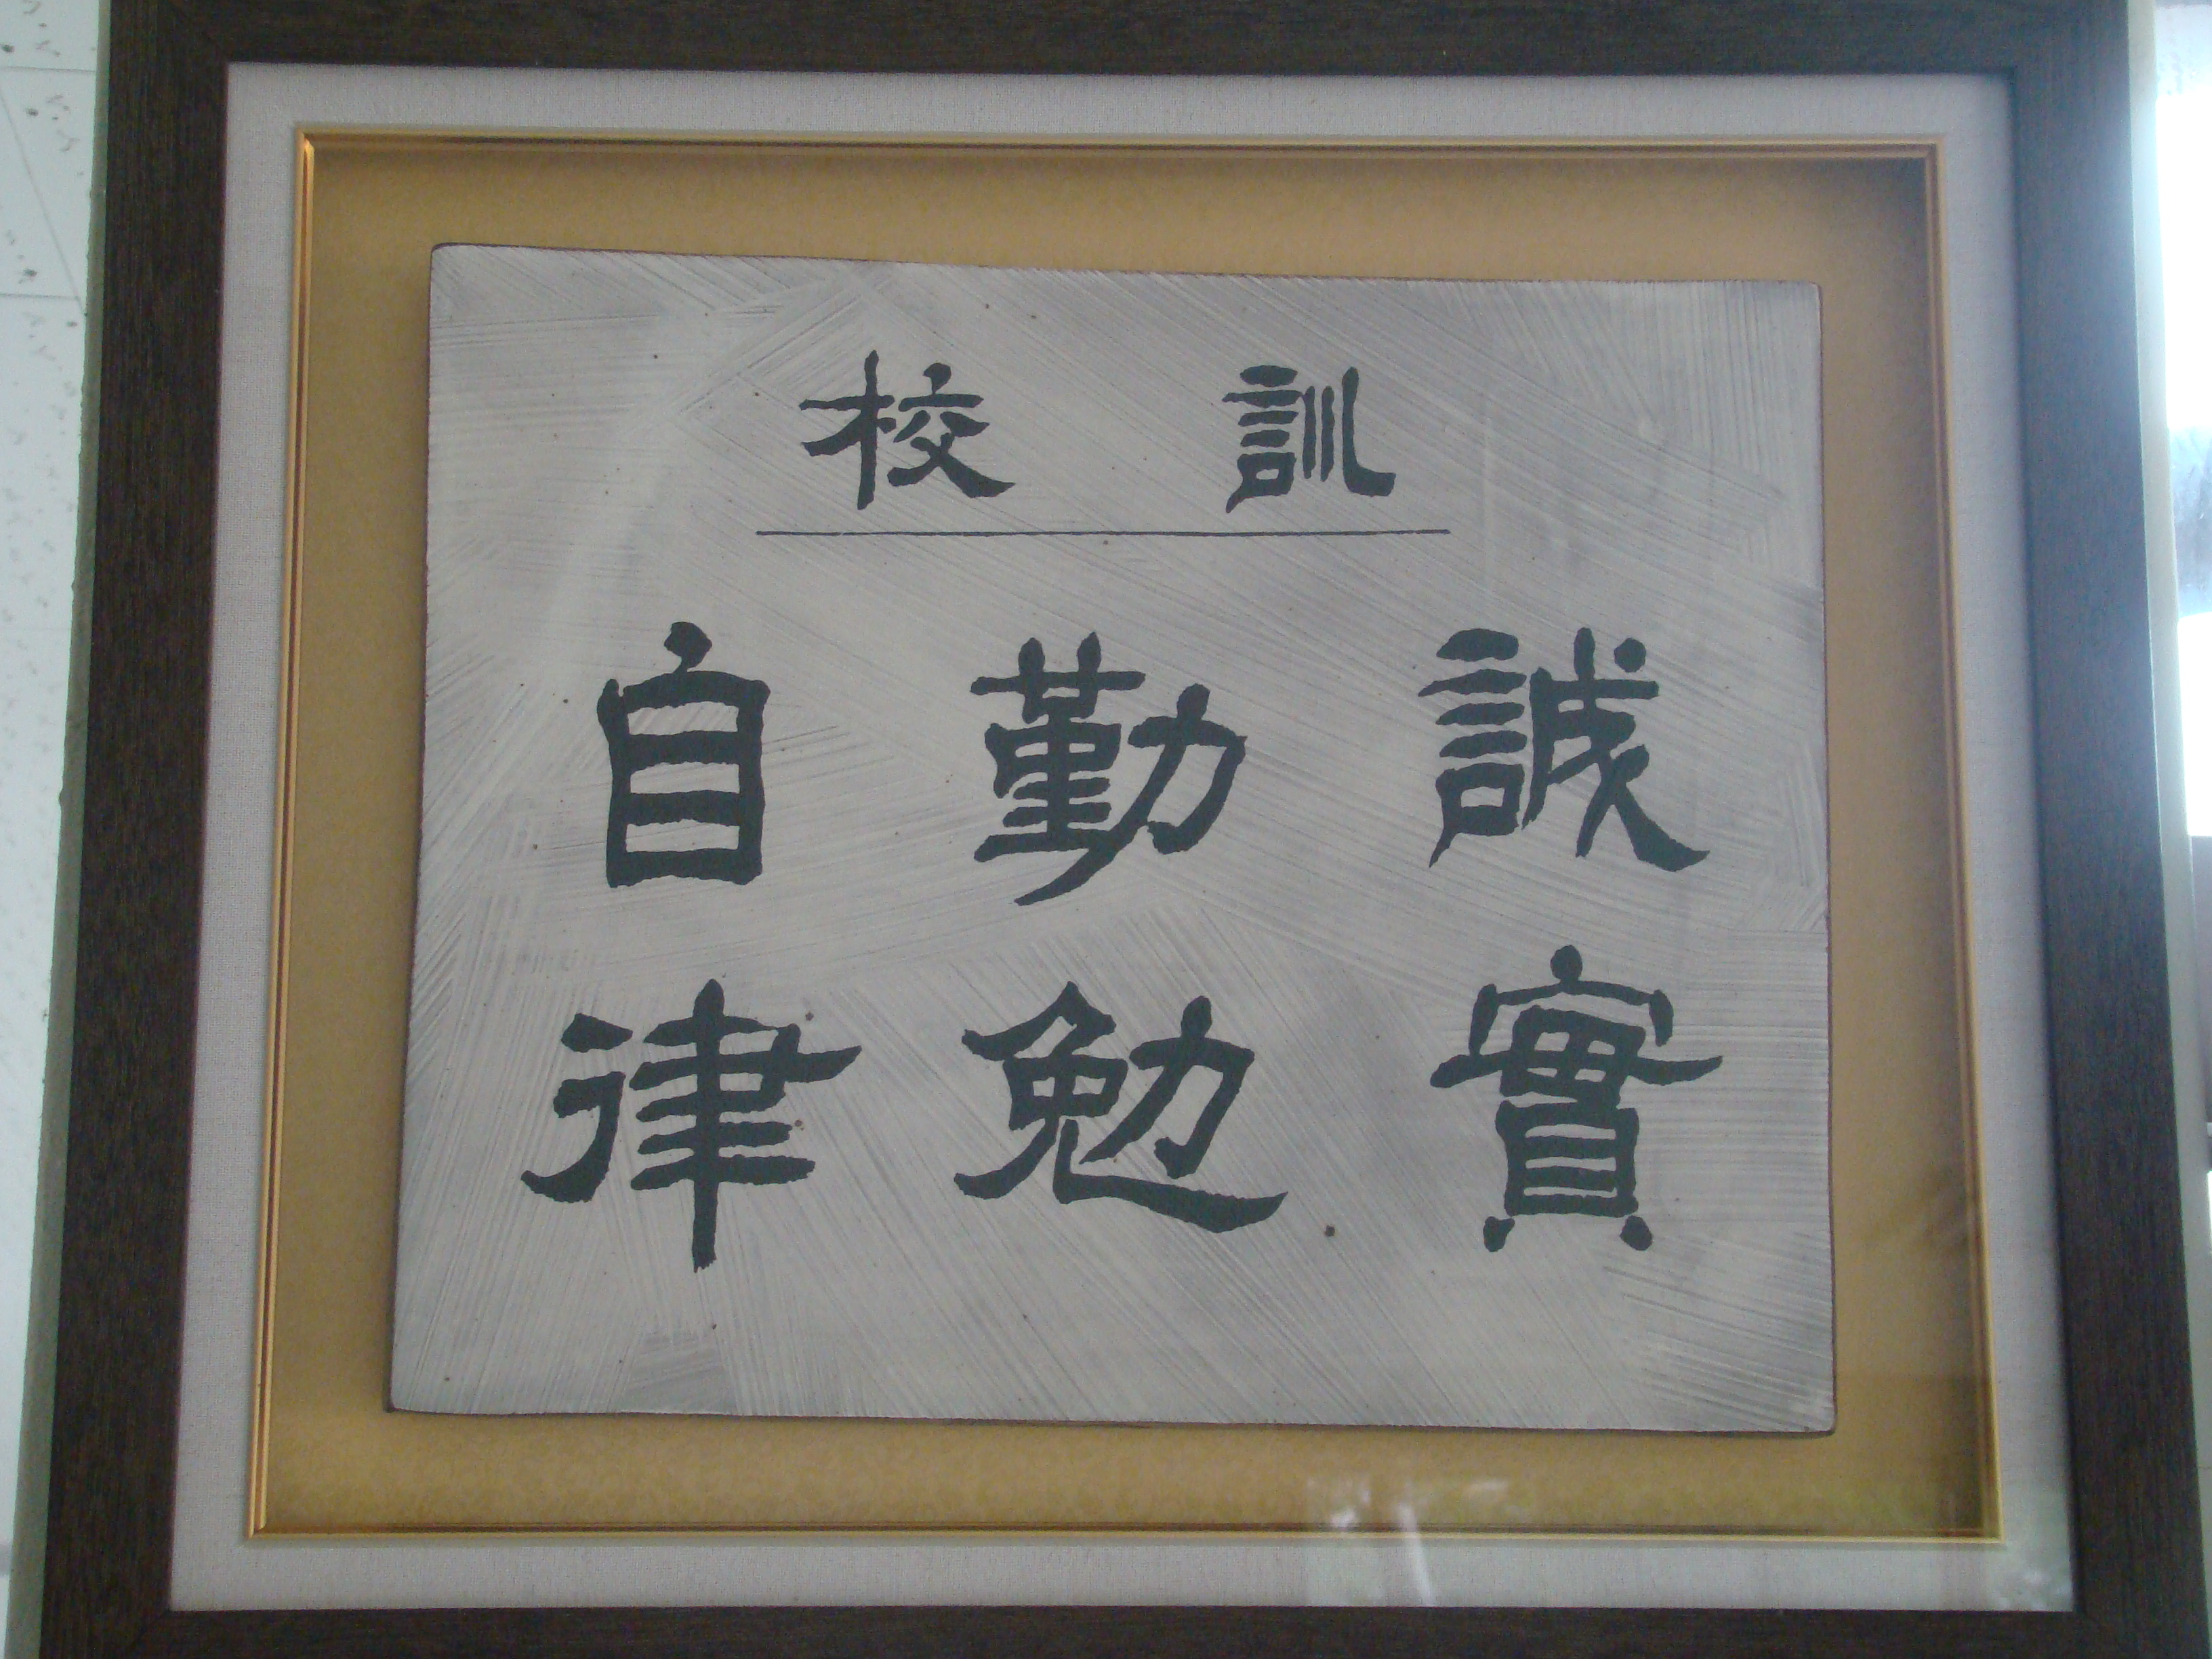 校訓
誠實
勤勉
自律